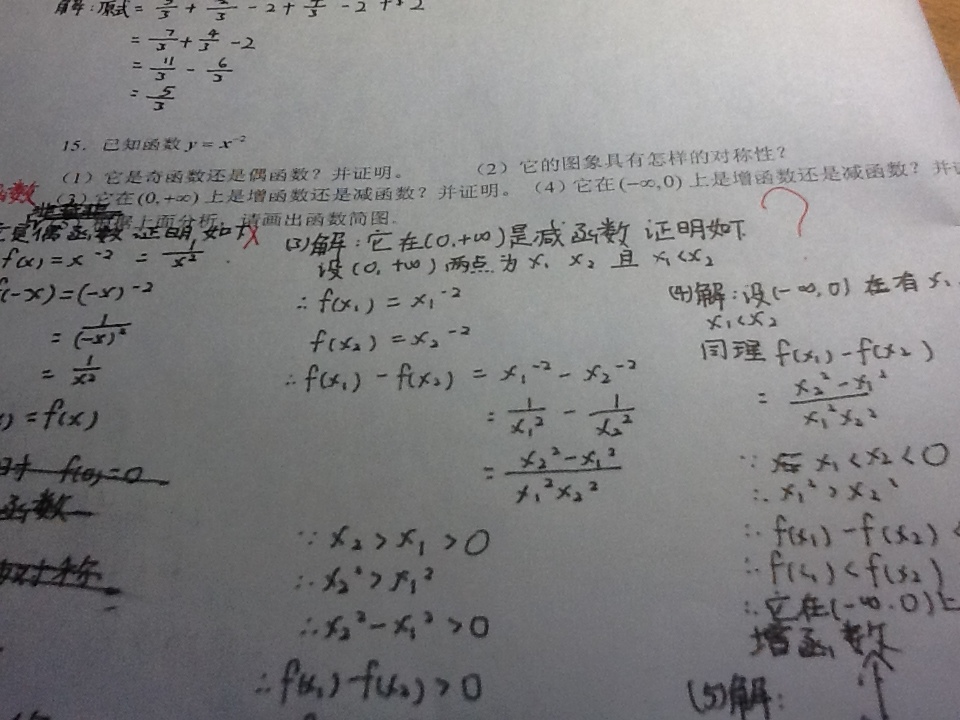 解：原式 = 5/3 + 2/3 - 2 + 4/3 - 2 +
= 7/3 + 4/3 - 2
= 11/3 - 6/3
= 5/3
15. 已知函数 y = x⁻²
(1) 它是奇函数还是偶函数？并证明。 (2) 它的图象具有怎样的对称性？
函数
(3) 它在(0,+∞) 上是增函数还是减函数？并证明。 (4) 它在(-∞,0) 上是增函数还是减函数？并证
根据上面分析，请画出函数简图.
是偶函数 证明如下 x
f(x) = x⁻² = 1/x²
f(-x) = (-x)⁻²
= 1/(-x)²
= 1/x²
) = f(x)
时 f(0) = 0
函数
对称
(3)解：它在(0,+∞)是减函数 证明如下
设(0,+∞)两点为 x₁ x₂ 且 x₁<x₂
∴ f(x₁) = x₁⁻²
f(x₂) = x₂⁻²
∴ f(x₁) - f(x₂) = x₁⁻² - x₂⁻²
= 1/x₁² - 1/x₂²
= (x₂² - x₁²)/(x₁²x₂²)
∵ x₂ > x₁ > 0
∴ x₂² > x₁²
∴ x₂² - x₁² > 0
∴ f(x₁) - f(x₂) > 0
?
(4)解：设(-∞,0) 在有 x₁
x₁<x₂
同理 f(x₁) - f(x₂)
= (x₂² - x₁²)/(x₁²x₂²)
∵ x₁ < x₂ < 0
∴ x₁² > x₂²
∴ f(x₁) - f(x₂) <
∴ f(x₁) < f(x₂)
∴ 它在(-∞.0)上
增函数
(5)解：